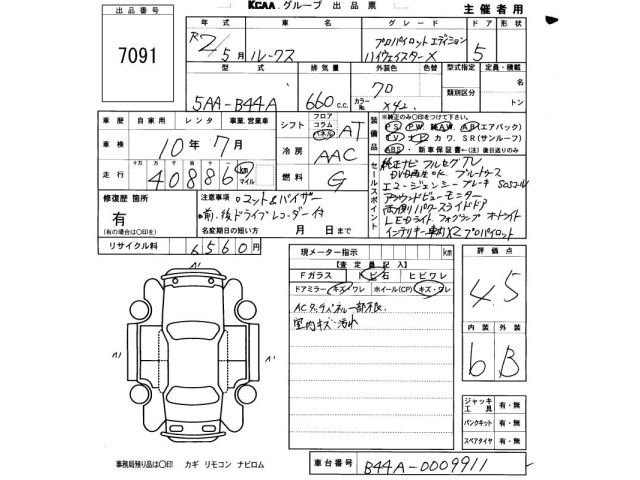 KCAA グループ 出品票
主催者用
出品番号
7091
年式
車名
グレード
ドア
形状
R2/5月
ルークス
プロパイロット エディション
ハイウェイスター X
5
型式
排気量
外装色
色替
型式指定
定員・積載
5AA-B44A
660 c.c.
カラーNo.
類別区分
名
トン
車歴
自家用
レンタ
事業、営業車
シフト
フロア
コラム
パネル
AT
装備品
※純正のみ〇印をつけて下さい。
PS PW 純AW AB(エアバック)
TV ナビ カワ SR(サンルーフ)
ABS 新車保証書←(注)後日送りのみ
車検
10年7月
冷房
AAC
走行
十万
万
千
百
十
40886
km
マイル
燃料
G
セールスポイント
純正ナビ フルセグTV
DVD再生OK ブルートゥース
エマージェンシーブレーキ SOSコール
アラウンドビューモニター
両側パワースライドドア
LEDライト フォグランプ オートライト
インテリキー 車内×2 プロパイロット
修復歴
箇所
有
(有の場合は〇印を)
注意事項
前、後ドライブレコーダー付
名変期日の短い方
月
日まで
リサイクル料
6560円
現メーター指示
km
【査定員記入】
Fガラス
キズ
ヒビワレ
ドアミラー キズ・ワレ
ホイール(CP) キズ・ワレ
室内キズ・汚れ
評価点
4.5
内装
外装
6
B
ジャッキ
工具
有・無
パンクキット
有・無
スペアタイヤ
有・無
事務局残り品は〇印
カギ リモコン ナビロム
車台番号
B44A-0009911